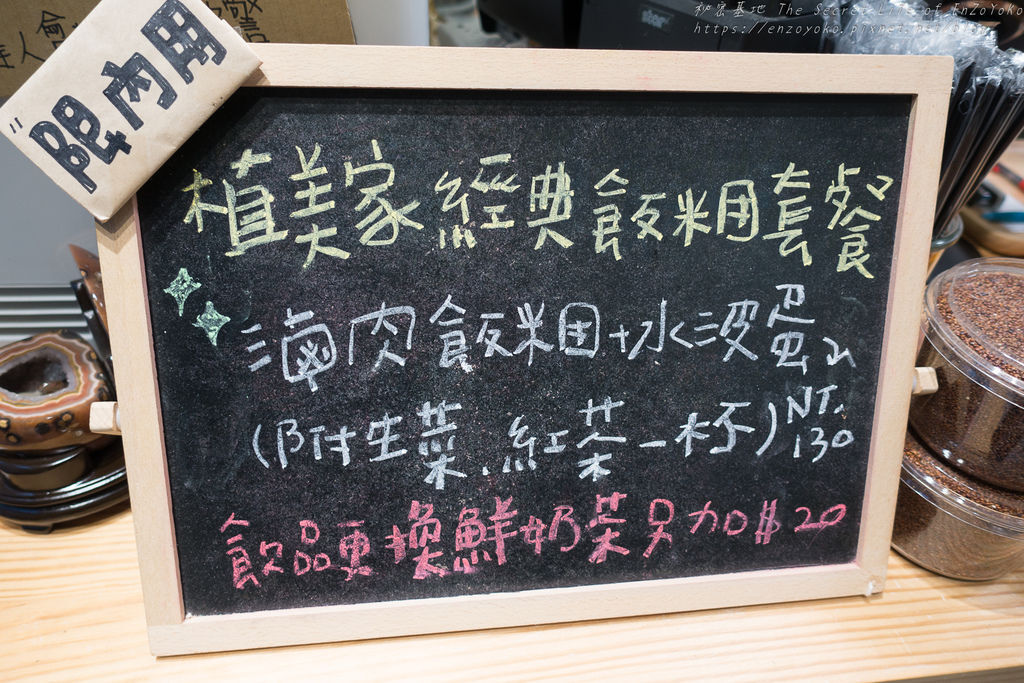 秘密基地 The Secret Life of EnZoYoKo
star
限內用
植美家 經典飯糰套餐
滷肉飯糰+水波蛋
(附生菜.紅茶一杯) NT.130
飲品更換鮮奶茶只加$20